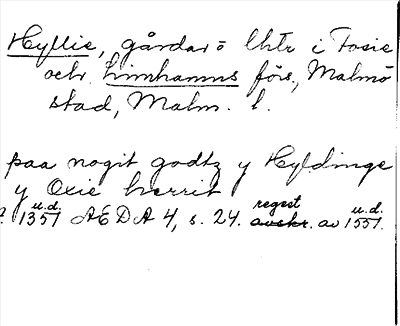 Hyllie, gårdar o lhtr i Fosie
och Limhamns förs., Malmö
stad, Malm. l.
paa nogit godtz y Hyldinge
y Oxie herrit
u.d. regest u.d.
1357 AEDA 4, s. 24. avskr. av 1551.